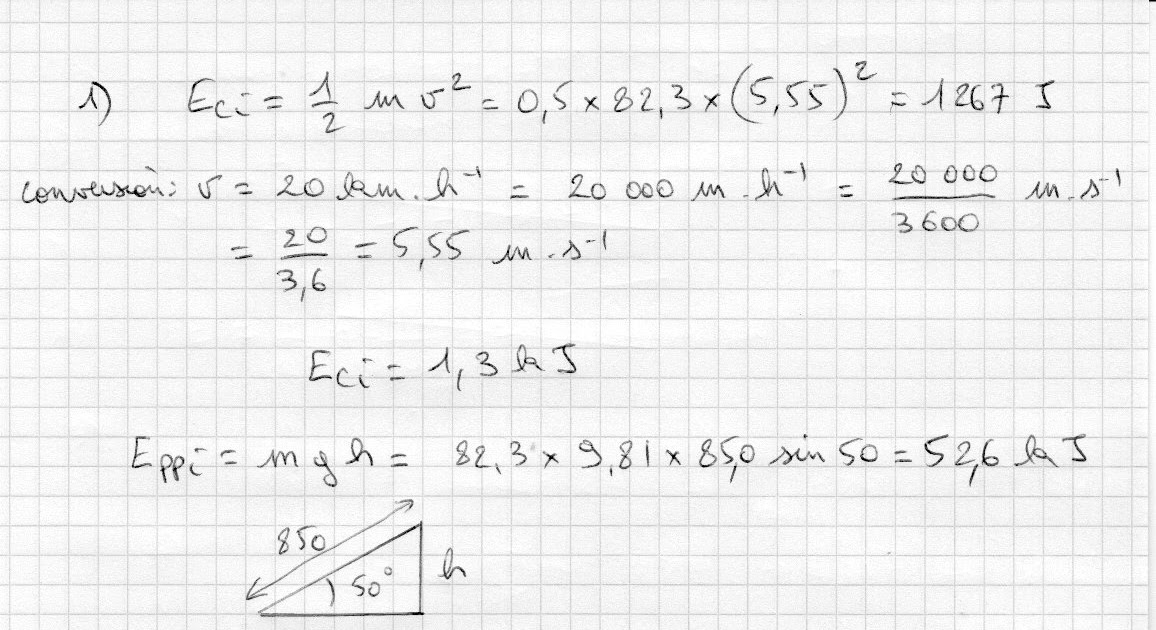 1) Eci = 1/2 m v² = 0,5 × 82,3 × (5,55)² = 1267 J
conversion: v = 20 km.h⁻¹ = 20 000 m.h⁻¹ = 20 000/3600 m.s⁻¹
= 20/3,6 = 5,55 m.s⁻¹
Eci = 1,3 kJ
Eppi = m g h = 82,3 × 9,81 × 85,0 sin 50 = 52,6 kJ
850
50°
h